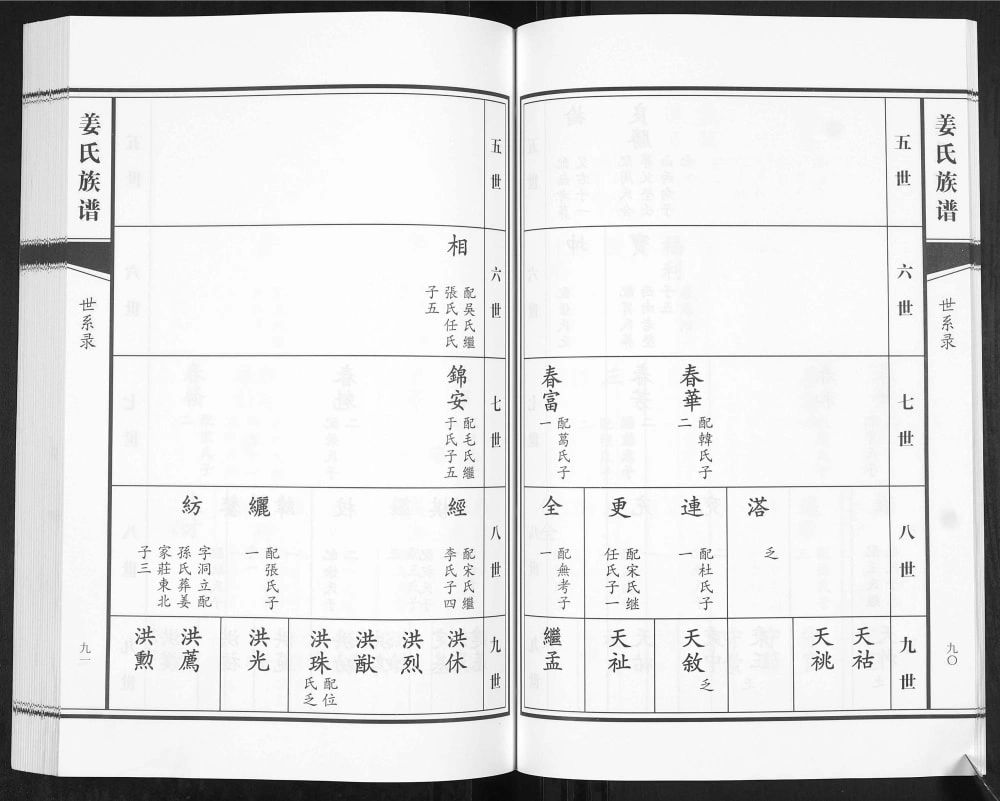 姜氏族谱
世系录
九〇
五世
六世
七世
八世
九世
春華
配韓氏子
二
春富
配葛氏子
一
乏
連
配杜氏子
一
更
配宋氏继
任氏子一
全
配無考子
一
天祜
天祧
天敘
乏
天祉
繼孟
五世
六世
七世
八世
九世
相
配吳氏繼
張氏任氏
子五
錦安
配毛氏繼
于氏子五
經
配宋氏繼
李氏子四
纚
配張氏子
一
紡
字洞立配
孫氏葬姜
家莊東北
子三
洪休
洪烈
洪猷
洪珠
配位
氏乏
洪光
洪薦
洪勲
姜氏族谱
世系录
九一